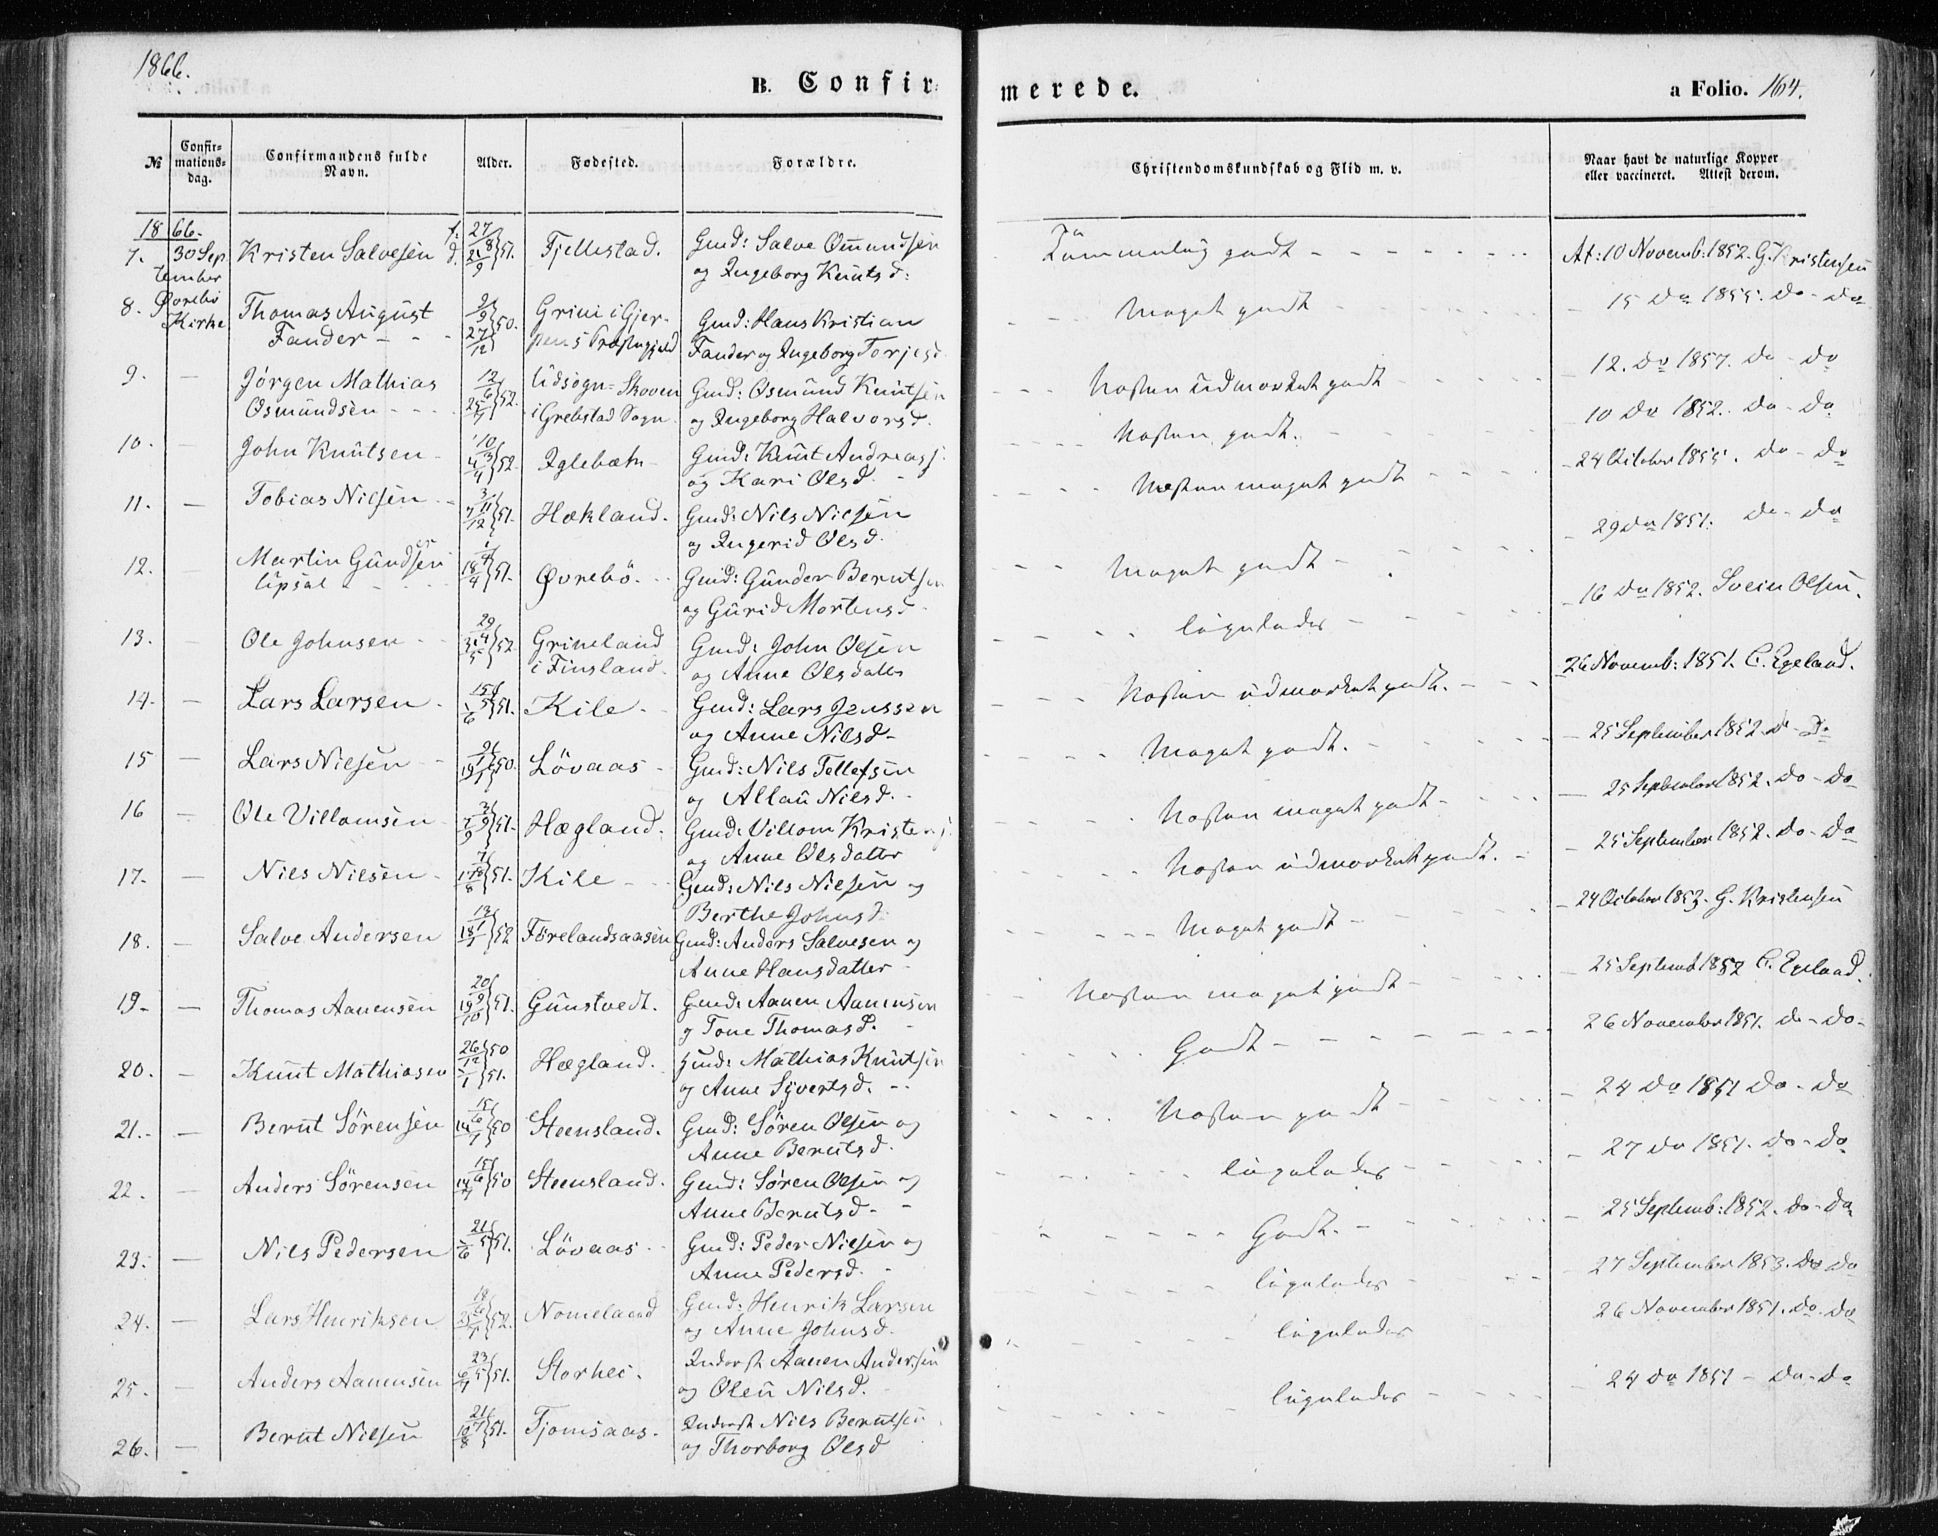 1866.
B. Confirmerede.
a Folio. 164.
№ Confirmations-dag. Confirmandens fulde Navn. Alder. Fødested. Forældre. Christendomskundskab og Flid m. v. Naar havt de naturlige Kopper eller vaccineret. Attest derom.
1866.
7. 30 September Kristen Salvesen f. 27/8 d. 21/9 51. Fjellestad. Gmd: Salve Omundsen og Ingeborg Knutsd: Tåmmelig godt At: 10 Novemb: 1852. G. Kristensen
8. Øvrebø Kirke Thomas August Fander 2/9 27/12 50. Grini i Gjerpens Præstegjeld Gmd: Hans Kristian Fander og Ingeborg Torjesd. Meget godt 15 Do 1855. do - do
9. — Jørgen Mathias Osmundsen 12/6 25/7 52. Udsogn=Skoven i Grebstad Sogn. Gmd: Osmund Knutsen og Ingeborg Halvorsd. Næsten udmærket godt 12. Do 1857. do - do
10. — John Knutsen 10/3 4/4 52. Iglebæk Gmd: Knut Andreass. og Kari Olsd. Næsten godt. 10 Do 1852. do - do
11. — Tobias Nilsen 3/11 7/12 51. Hækland. Gmd: Nils Nielsen og Ingerid Olsd. Næsten meget godt 24 October 1855. do - do
12. — Martin Gundersen Upsal 1/4 18/4 51. Øvrebö. Gmd: Gunder Berntsen og Gurid Mortensd. Meget godt 29 Do 1851. do - do
13. — Ole Johnsen 29/4 31/5 52 Grineland i Finsland. Gmd: John Olsen og Anne Olsdatter ligeledes 16 Do 1852. Svein Olsen.
14. — Lars Larsen 15/5 /6 51. Kile Gmd: Lars Jenssen og Anne Nilsd. Næsten udmærket godt. 26 Novemb: 1851. C. Egeland.
15 — Lars Nilsen 50. Lövaas Gmd: Nils Tellefsen og Allau Nilsd. Meget godt. 25 September 1852 do - do
16 — Ole Villamsen 51. Hægland. Gmd: Villom Kristens. og Anne Olsdatter Næsten meget godt 25 September 1852. do - do
17. — Nils Nilsen 51. Kile Gmd: Nils Nilsen og Berthe Johnsd: Næsten udmærket godt. 25 September 1852. do - do
18. — Salve Andersen 13/1 18/1 52 Förelandsaasen Gmd: Anders Salvesen og Anne Hansdatter Meget godt 24 October 1853. G. Kristensen
19. — Thomas Aanensen 20/9 19/10 51. Gunstvedt. Gmd: Aanen Aanenson og Tone Thomasd. Næsten meget godt 25 Septemb 1852 C. Egeland.
20. — Knut Mathiasen 26/12 50 /1 51. Hægland. Gmd: Mathias Knutsen og Anne Syvertsd. Godt 26 November 1851. do - do
21. — Bernt Sørensen 15/6 14/7 50 Steensland. Gmd: Søren Olsen og Anne Berntsd. Næsten godt 24 Do 1851 do - do
22. — Anders Sørensen 15/6 14/7 50 Steensland. Gmd: Søren Olsen og Anne Berntsd. ligeledes 27 Do 1851. do - do
23. — Nils Pedersen 21/5 /6 51. Lövaas Gmd: Peder Nilsen og Anne Pedersd. Godt. 25 Septemb: 1852. do - do
24. — Lars Henriksen 52. Nomeland Gmd: Henrik Larsen og Anne Johnsd. ligeledes 27 September 1853. do do
25. — Anders Aanensen 23/5 6/7 51. Storhei. Inderst Aanen Andersen og Olen Nilsd. ligeledes 26 November 1851. do. do
26. — Bernt Nilsen 21/7 10/8 51. Fjomsaas. Inderst Nils Berntsen og Thorborg Olsd ligeledes 24 Do 1851 - do - do